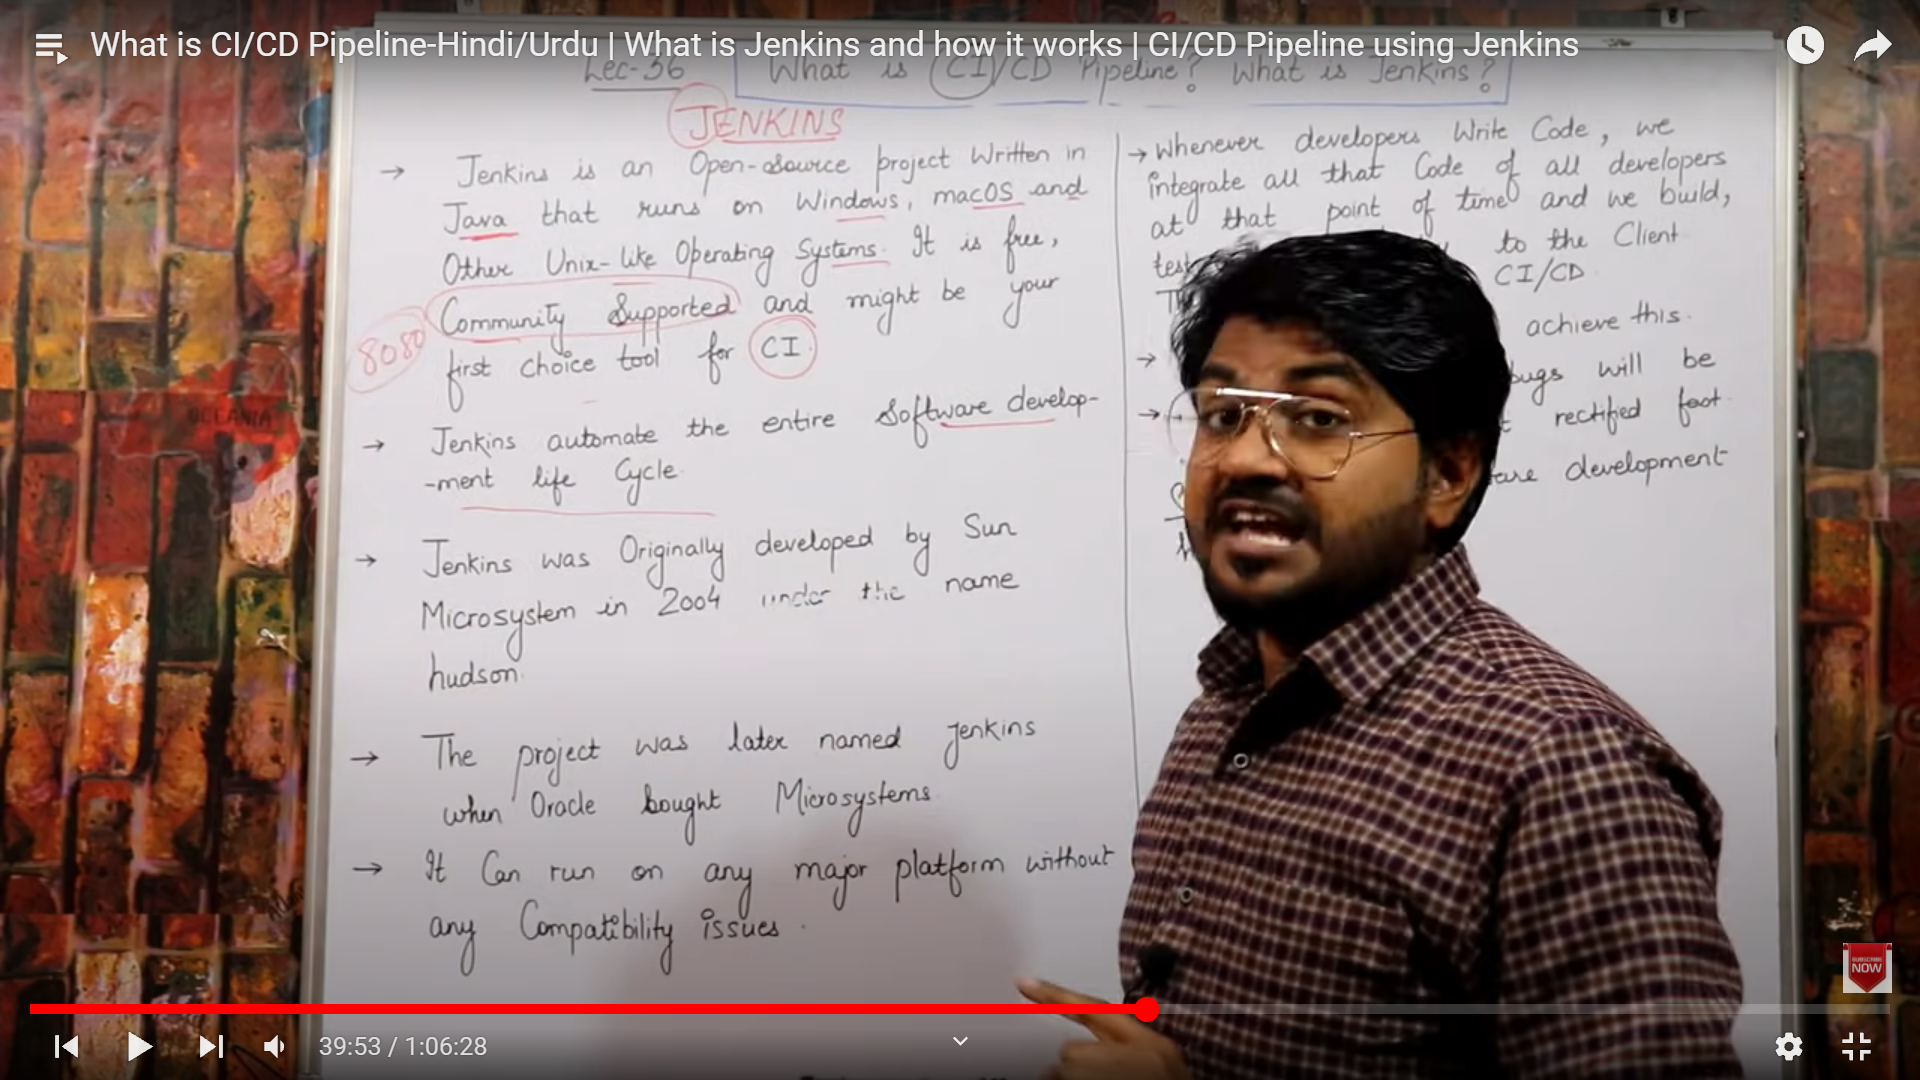 What is CI/CD Pipeline-Hindi/Urdu | What is Jenkins and how it works | CI/CD Pipeline using Jenkins
Lec-56 What is CI/CD Pipeline? What is Jenkins?
JENKINS
→ Jenkins is an Open-source project Written in
Java that runs on Windows, macOS and
Other Unix-like Operating Systems. It is free,
Community Supported and might be your
first choice tool for CI.
8080
→ Jenkins automate the entire Software develop-
-ment life Cycle.
→ Jenkins was Originally developed by Sun
Microsystem in 2004 under the name
hudson.
→ The project was later named Jenkins
when Oracle bought Microsystems.
→ It Can run on any major platform without
any Compatibility issues.
→ Whenever developers Write Code, we
integrate all that Code of all developers
at that point of time and we build,
to the Client.
CI/CD.
achieve this.
→ bugs will be
→ rectified fast.
development
OCEANIA
SUBSCRIBE
NOW
39:53 / 1:06:28